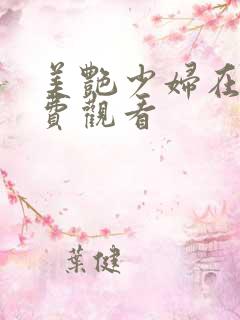 美艷少婦在
費觀看
葉健